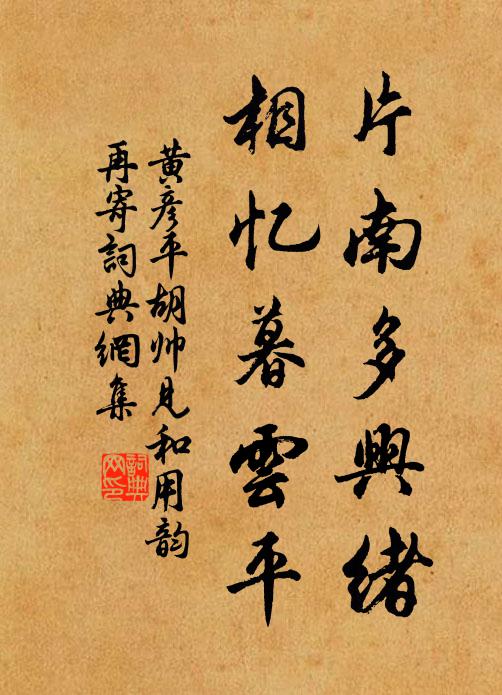 片南多興緒
相忆暮雲平
黄彦平胡帅见和用韵
再寄詞典網集
詞典網印